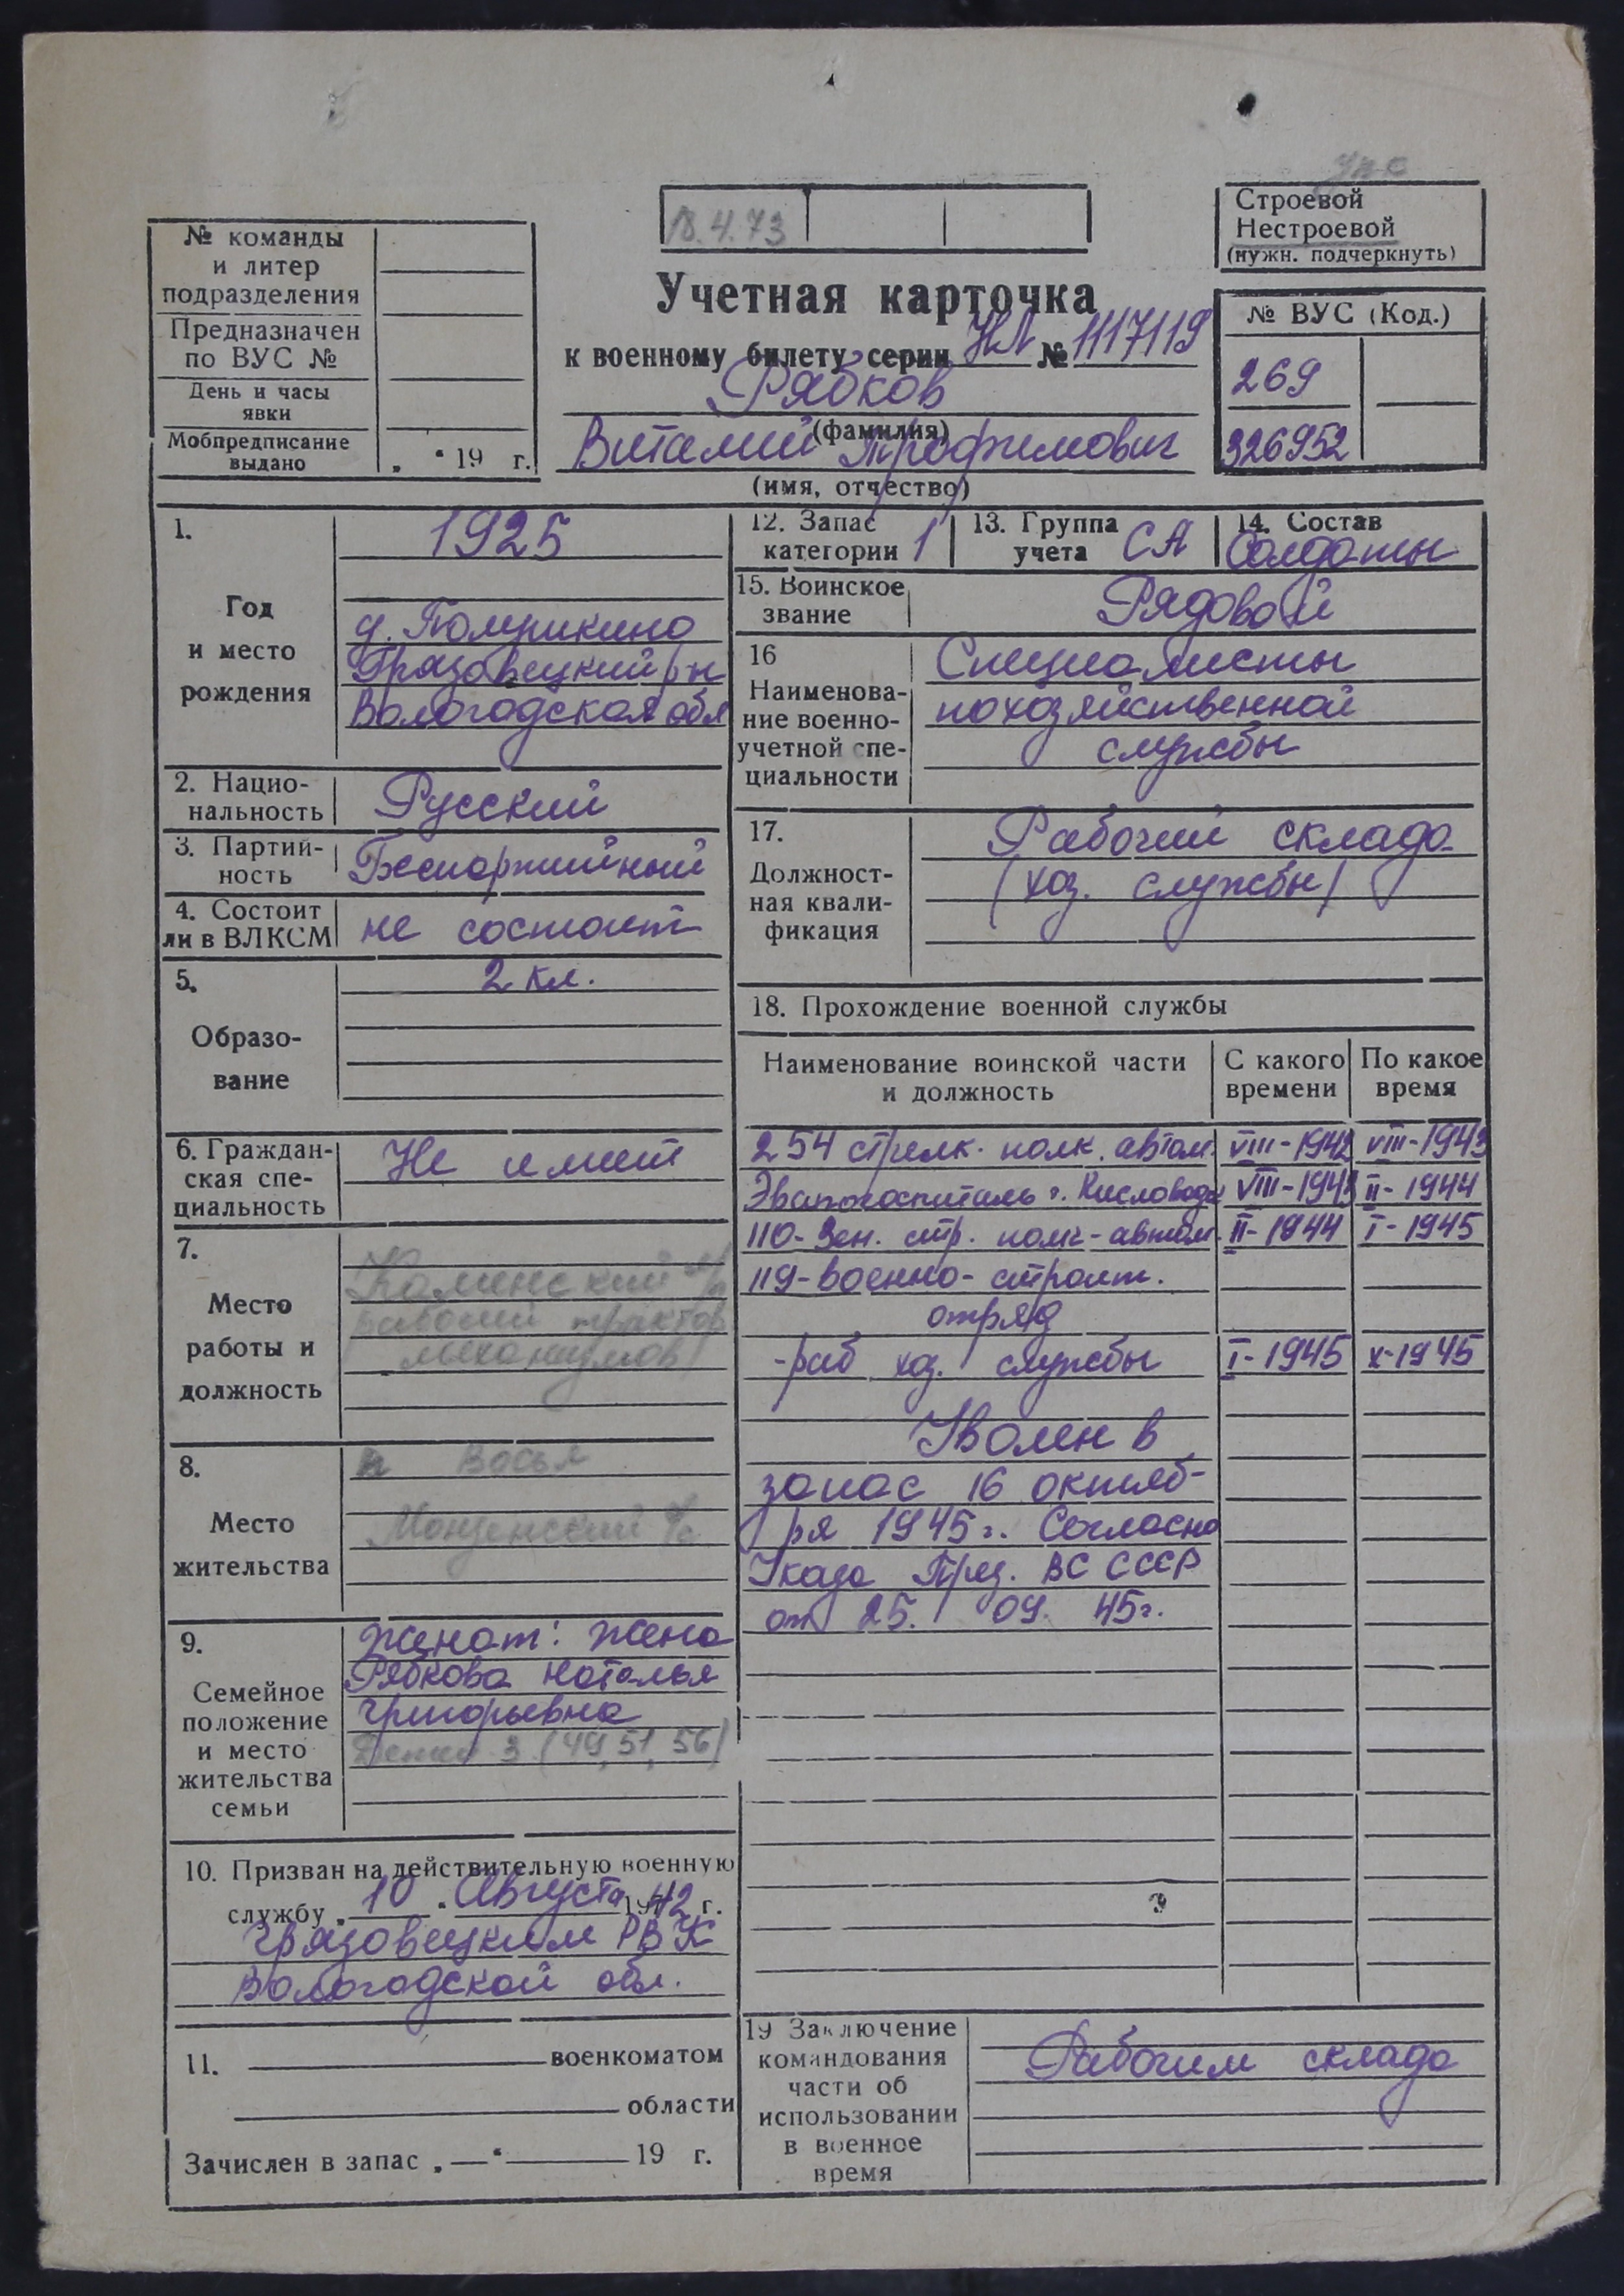 упо
Строевой
Нестроевой
(нужн. подчеркнуть)
18.4.73
№ команды
и литер
подразделения
Предназначен
по ВУС №
День и часы
явки
Мобпредписание
выдано „ “ 19 г.
Учетная карточка
к военному билету серии НЛ № 1117119
Рябков
(фамилия)
Виталий Трофимович
(имя, отчество)
№ ВУС (Код.)
269
326952
1.
Год
и место
рождения
1925
Грязовецкий р-н
Вологодская обл
2. Нацио-
нальность Русский
3. Партий-
ность Беспартийный
4. Состоит
ли в ВЛКСМ не состоит
5.
Образо-
вание
2 кл.
6. Граждан-
ская спе-
циальность
Не имеет
7.
Место
работы и
должность
Каменский
рабочий трактор
механизмов
8.
Место
жительства
п Восья
Монзенский
9.
Семейное
положение
и место
жительства
семьи
Женат: жена
Рябкова Наталья
Григорьевна
Детей 3 (49, 51, 56)
10. Призван на действительную военную
службу „ 10 “ Августа 1942 г.
Грязовецким РВК
Вологодской обл.
11. военкоматом
области
Зачислен в запас „ — “ 19 г.
12. Запас
категории 1
13. Группа
учета СА
14. Состав
Солдаты
15. Воинское
звание Рядовой
16
Наименова-
ние военно-
учетной спе-
циальности
Специалисты
по хозяйственной
службы
17.
Должност-
ная квали-
фикация
Рабочий склада
(хоз. службы)
18. Прохождение военной службы
Наименование воинской части
и должность
С какого
времени
По какое
время
254 стрелк. полк. автом. VIII-1942 VIII-1943
Эвакогоспиталь г. Кисловодск VIII-1943 II-1944
110-Зен. стр. полк-автом. II-1944 I-1945
119-военно-строит.
отряд
-раб хоз. службы I-1945 X-1945
Уволен в
запас 16 октяб-
ря 1945 г. Согласно
Указа През. ВС СССР
от 25. 09. 45г.
19 Заключение
командования
части об
использовании
в военное
время
Рабочим склада